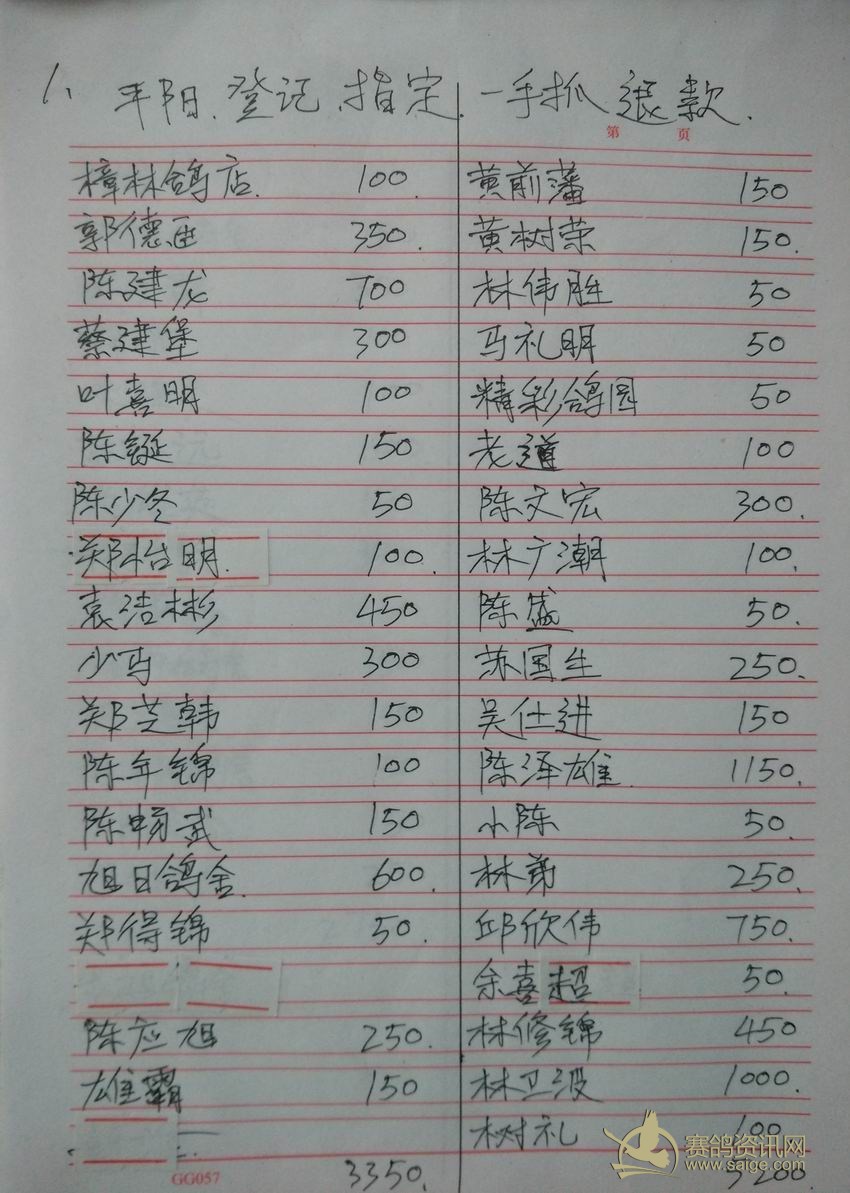 1、平阳、登记、指定、一手抓退款.
第 页
樟林鸽店. 100
郭德 350.
陈建龙 700
蔡建堡 300
叶喜明 100
陈铤 150
陈少冬 50
郑怡明. 100.
袁洁彬 450
少马 300
郑芝韩 150
陈年锦 100
陈畅武 150
旭日鸽舍. 600.
郑得锦 50.
陈应旭 250.
雄霸 150
3350.
黄前藩 150
黄树荣 150.
林伟胜 50
马礼明 50
精彩鸽园 50
老道 100
陈文宏 300.
林广潮 100.
陈盛 50.
苏国生 250.
吴仕进 150
陈泽雄. 1150.
小陈 50.
林弟 250.
邱欣伟 750.
余喜超 50.
林修锦 450
林卫波 1000.
树礼 100
5200
GG057
赛鸽资讯网
www.saige.com